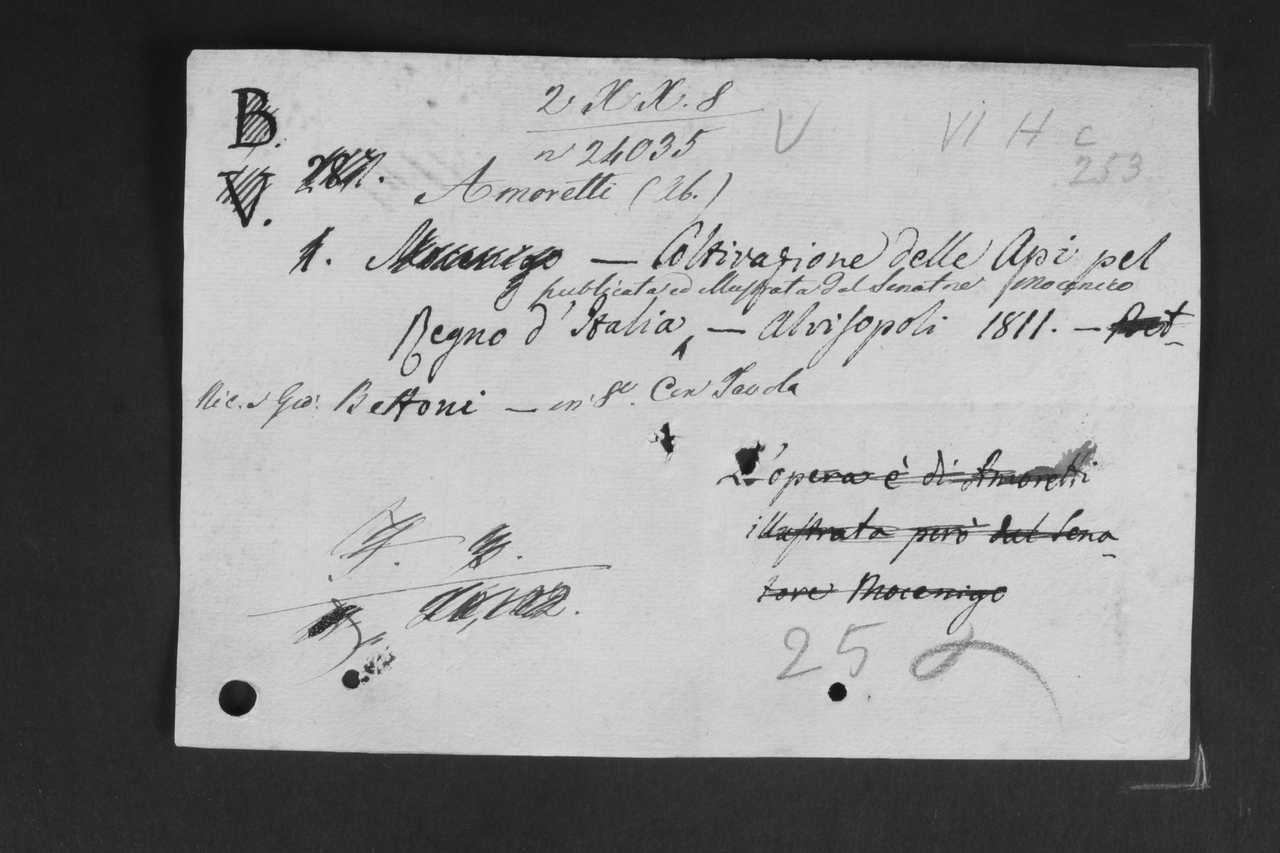 B.
2 XX. 8
n 24035
V
VI H c
253
V.
Amoretti (Ab.)
1. Mocenigo — Coltivazione delle Api pel
pubblicata ed illustrata dal Senatore Mocenico
Regno d'Italia — Alvisopoli 1811. —
Nic. e Gio: Bettoni — in 8º. Con Tavola
L'opera è di Amoretti
illustrata però dal Sena
tore Mocenigo
25